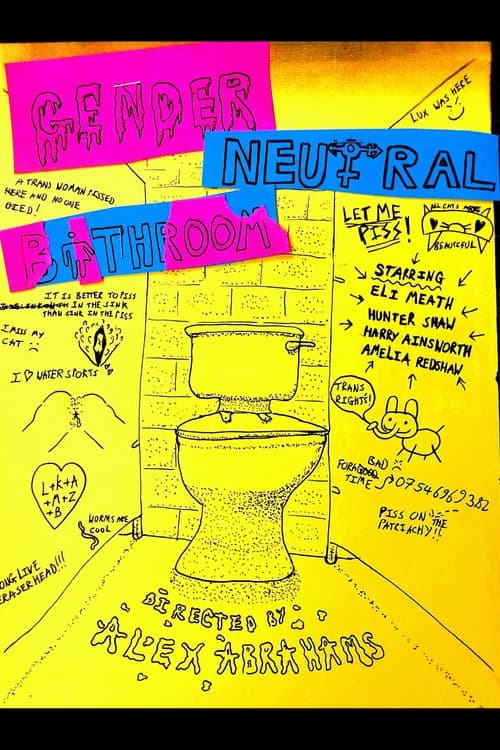 GENDER
NEUTRAL
BATHROOM
LUX WAS HERE
A TRANS WOMAN PISSED
HERE AND NO ONE
DIED!
LET ME
PISS!
ALL CATS ARE
BEAUTIFUL
STARRING
ELI MEATH
HUNTER SHAW
HARRY AINSWORTH
AMELIA REDSHAW
IT IS BETTER TO PISS
IN THE SINK
THAN SINK IN THE PISS
I MISS MY
CAT :(
I ♡ WATER SPORTS
TRANS
RIGHTS!
L+K+A
+M+Z
+B
WORMS ARE
COOL
BAD
FOR A GOOD
TIME
07546969382
PISS ON THE
PATRIACHY!!
LONG LIVE
ERASERHEAD!!!
DIRECTED BY
ALEX ABRAHAMS